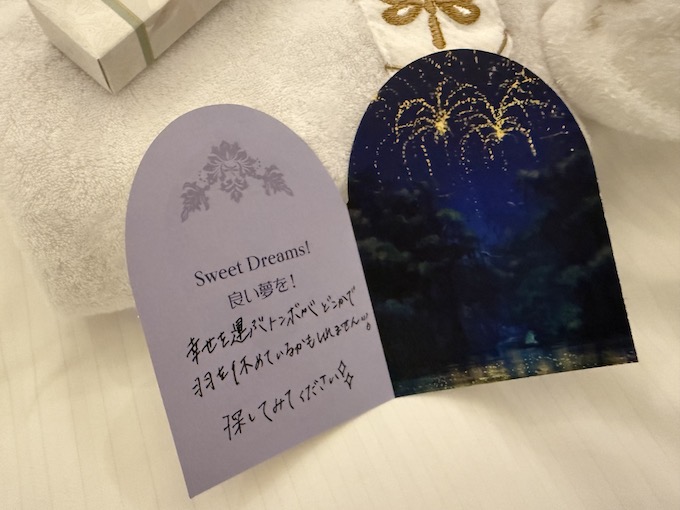 Sweet Dreams!
良い夢を!
幸せを運ぶトンボが どこかで
羽を休めているかもしれません。
探してみてください